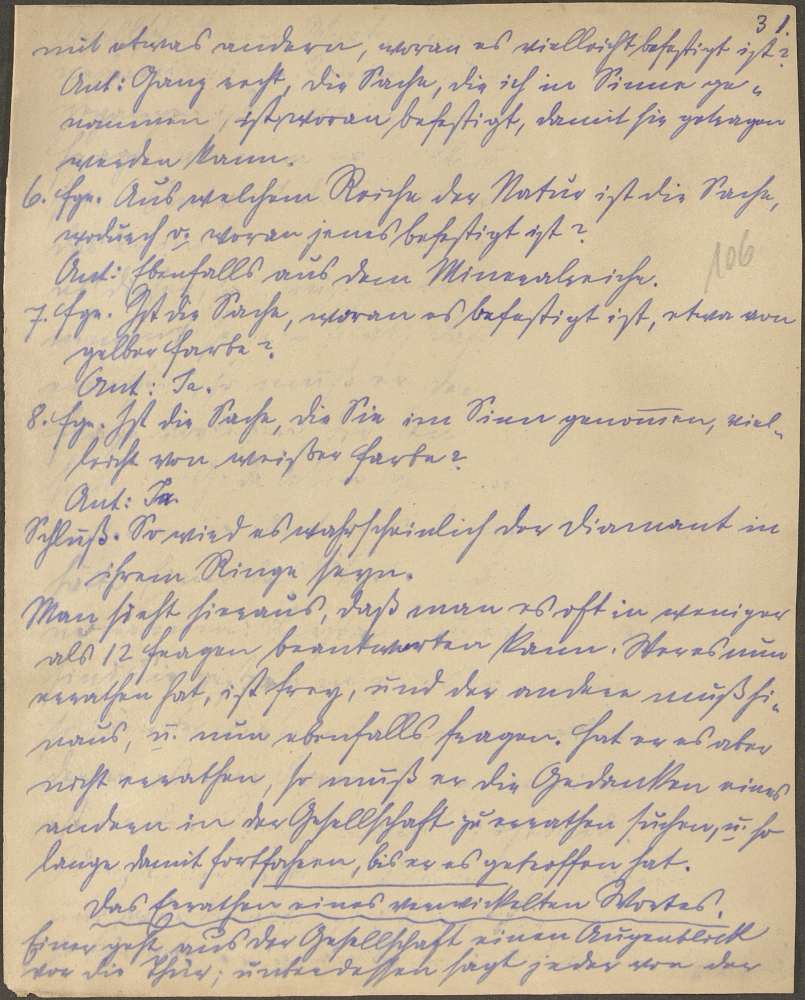 31.
mit etwas andern, woran es vielleicht befestigt ist?
Ant: Ganz recht, die Sache, die ich in Sinne ge-
nommen, ist woran befestigt, damit sie getragen
werden kann.
6. Fge. Aus welchem Reiche der Natur ist die Sache,
wodurch o. woran jenes befestigt ist?
106
Ant: Ebenfalls aus dem Mineralreiche.
7. Fge. Ist die Sache, woran es befestigt ist, etwa von
gelber Farbe?
Ant: Ja.
8. Fge. Ist die Sache, die Sie im Sinn genom̅en, viel-
leicht von weißer Farbe?
Ant: Ja.
Schluß. So wird es wahrscheinlich der Diamant in
ihrem Ringe seyn.
Man sieht hieraus, daß man es oft in weniger
als 12 Fragen beantworten kann. Wer es nun
errathen hat, ist frey, und der andere muß hi-
naus, u. nun ebenfalls fragen. Hat er es aber
nicht errathen, so muß er die Gedanken eines
andern in der Gesellschaft zu errathen suchen, u. so
lange damit fortfahren, bis er es getroffen hat.
Das Errathen eines verwickelten Wortes.
Einer geht aus der Gesellschaft einen Augenblick
vor die Thür; unterdessen sagt jeder von der